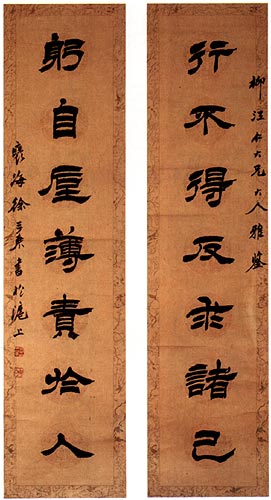 柳汀仁大兄大人雅鑒
行不得反求諸己
躬自厚薄責於人
褱海徐三庚書於滬上